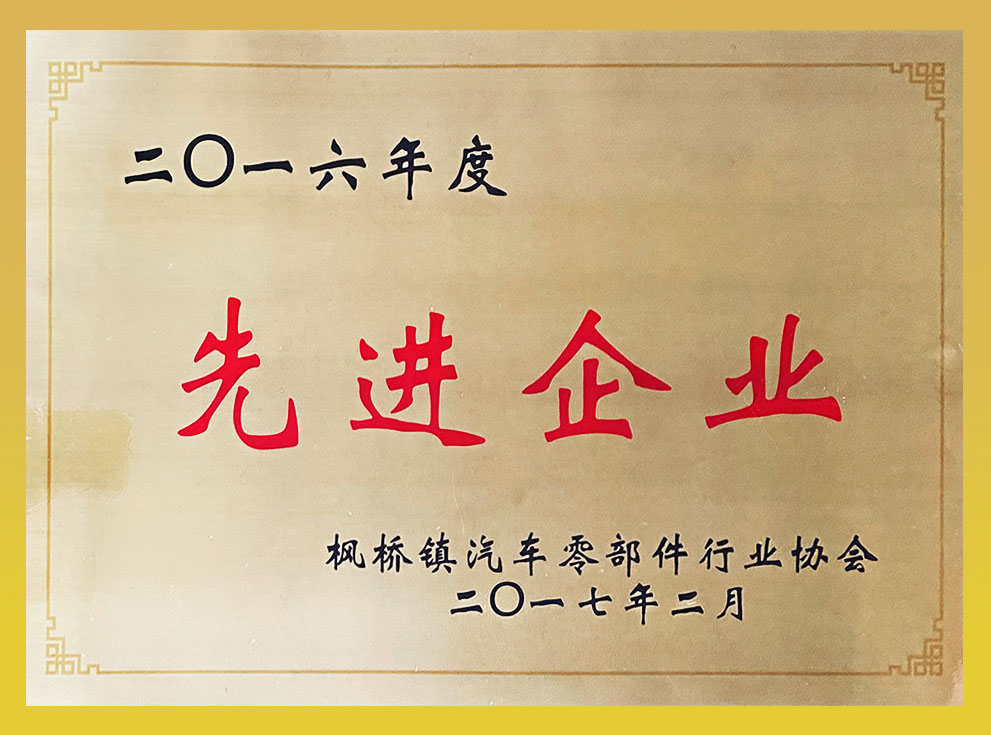 二〇一六年度
先进企业
枫桥镇汽车零部件行业协会
二〇一七年二月